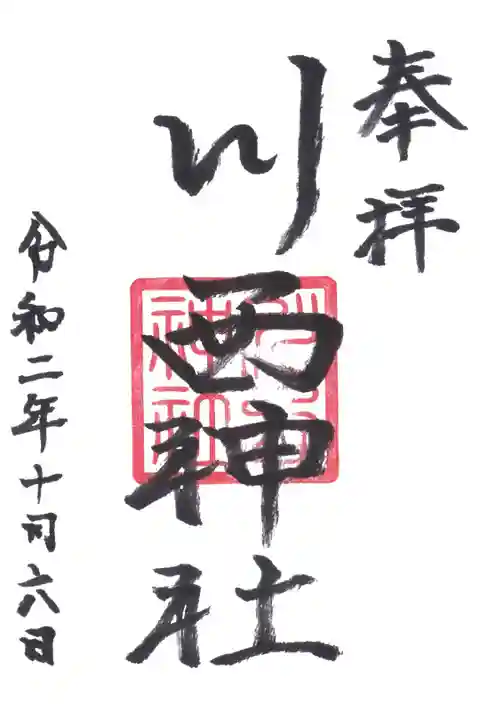 奉拝
川西神社
令和二年十月六日